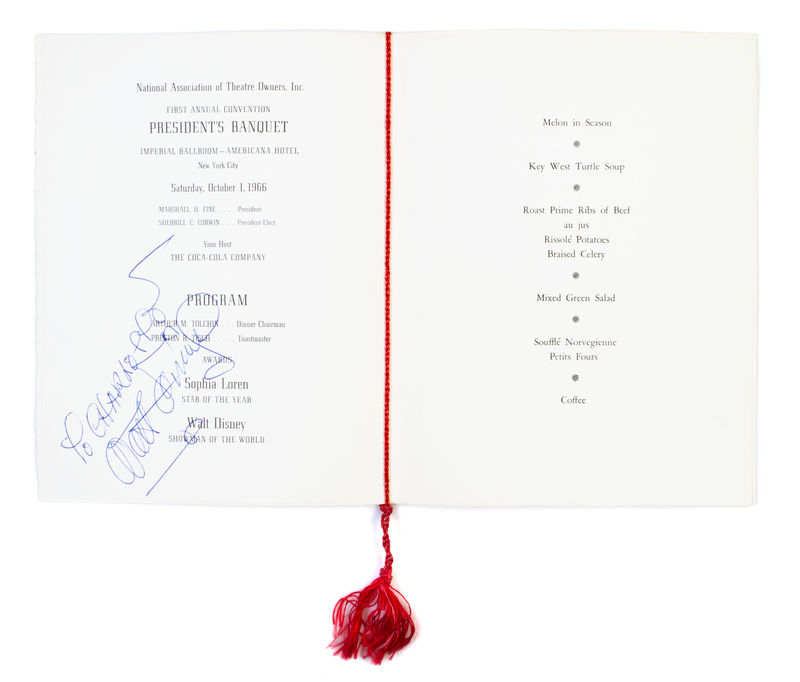 National Association of Theatre Owners, Inc.
FIRST ANNUAL CONVENTION
PRESIDENT'S BANQUET
IMPERIAL BALLROOM—AMERICANA HOTEL
New York City
Saturday, October 1, 1966
MARSHALL H. FINE .... President
SHERRILL C. CORWIN ... President-Elect
Your Host
THE COCA-COLA COMPANY
PROGRAM
ARTHUR M. TOLCHIN ... Dinner Chairman
PRESTON R. TISCH ..... Toastmaster
AWARDS
Sophia Loren
STAR OF THE YEAR
Walt Disney
SHOWMAN OF THE WORLD
To
Walt Disney
Melon in Season
Key West Turtle Soup
Roast Prime Ribs of Beef
au jus
Rissolé Potatoes
Braised Celery
Mixed Green Salad
Soufflé Norvegienne
Petits Fours
Coffee